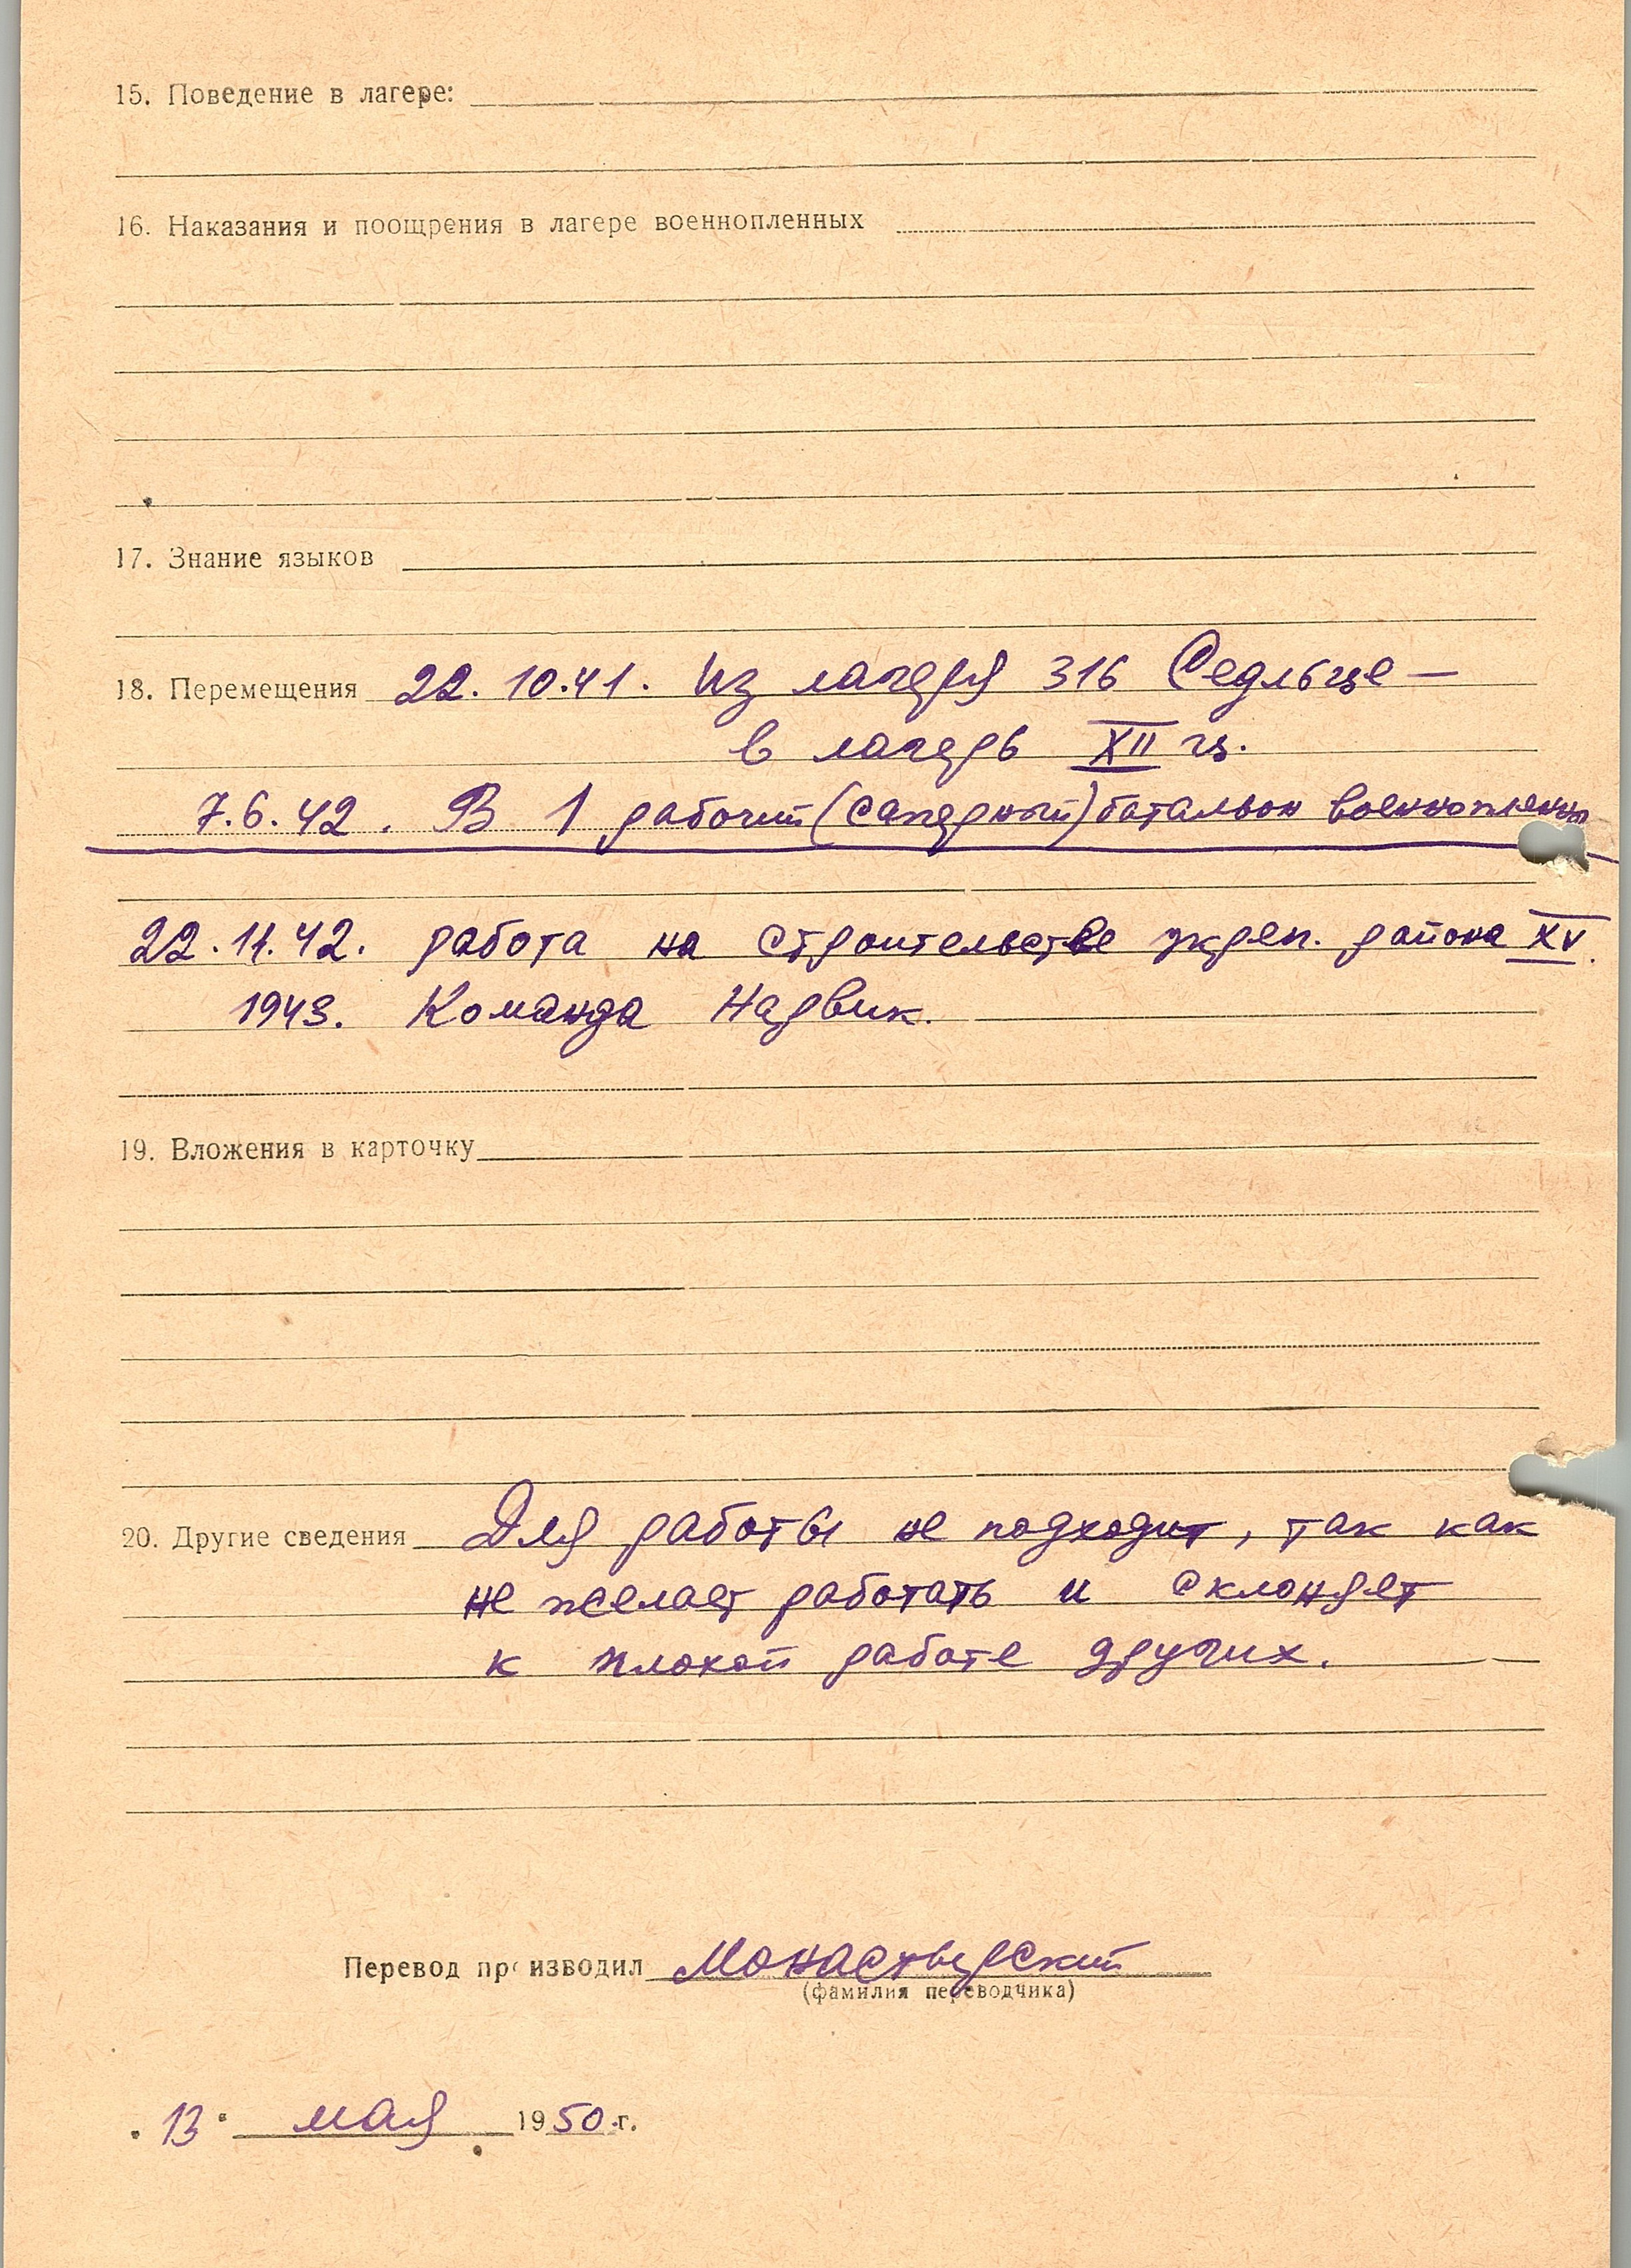 15. Поведение в лагере:
16. Наказания и поощрения в лагере военнопленных
17. Знание языков
18. Перемещения 22.10.41. Из лагеря 316 Седльце —
в лагерь XII ц.
7.6.42. В 1 рабочий (саперный) батальон военнопленных
22.11.42. работа на строительстве укреп. района XV.
1943. Команда Нарвик.
19. Вложения в карточку
20. Другие сведения Для работы не подходит, так как
не желает работать и склоняет
к плохой работе других.
Перевод производил Монастырский
(фамилия переводчика)
"13" мая 1950 г.